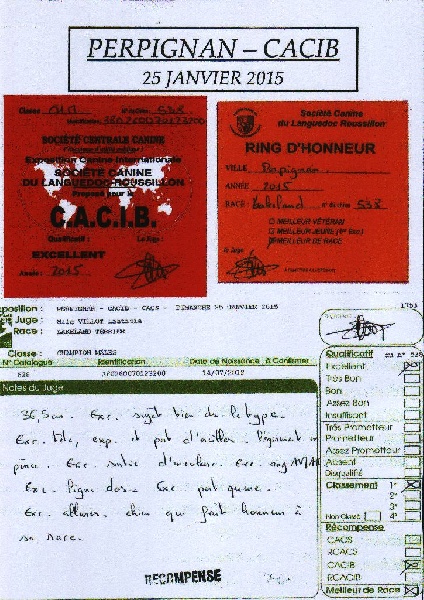 PERPIGNAN – CACIB
25 JANVIER 2015
Classe : 538
SOCIÉTÉ CENTRALE CANINE
Exposition Canine Internationale
SOCIÉTÉ CANINE
DU LANGUEDOC-ROUSSILLON
Proposé pour le
C.A.C.I.B.
Qualificatif : Le Juge :
EXCELLENT
Année : 2015
Société Canine
du Languedoc Roussillon
RING D'HONNEUR
VILLE Perpignan
ANNÉE 2015
RACE : Lakeland 538
MEILLEUR VÉTÉRAN
MEILLEUR JEUNE
MEILLEUR DE RACE
Le Juge
xposition : PERPIGNAN - CACIB - CACS - DIMANCHE 25 JANVIER 2015
Juge : Mlle VILLOT
Race : LAKELAND TERRIER
Classe : CHAMPION MALES
N° Catalogue Identification Date de Naissance A Confirmer
538 14/07/2012
Notes du Juge
36,5 cm Exc. sujet bien du le type.
Exc. tête, exp. et port d'oreilles.
Exc. ligne dos. Exc. port queue.
Exc. allures. chien qui fait honneur à
sa race.
RECOMPENSE
Qualificatif
Excellent
Très Bon
Bon
Assez Bon
Insuffisant
Très Prometteur
Prometteur
Assez Prometteur
Absent
Disqualifié
Classement 1°
2°
3°
Non Classé 4°
Récompense
CACS
RCACS
CACIB
RCACIB
Meilleur de Race